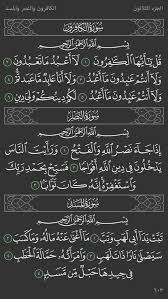 الجزء الثلاثون
الكافرون والنصر والمسد
سُورَةُ الكَافِرُونَ
بِسْمِ اللَّهِ الرَّحْمَٰنِ الرَّحِيمِ
قُلْ يَٰٓأَيُّهَا ٱلْكَٰفِرُونَ ١ لَآ أَعْبُدُ مَا تَعْبُدُونَ ٢
وَلَآ أَنتُمْ عَٰبِدُونَ مَآ أَعْبُدُ ٣ وَلَآ أَنَا۠ عَابِدٌ مَّا عَبَدتُّمْ
٤ وَلَآ أَنتُمْ عَٰبِدُونَ مَآ أَعْبُدُ ٥ لَكُمْ دِينُكُمْ وَلِىَ دِينِ ٦
سُورَةُ النَّصْرِ
بِسْمِ اللَّهِ الرَّحْمَٰنِ الرَّحِيمِ
إِذَا جَآءَ نَصْرُ ٱللَّهِ وَٱلْفَتْحُ ١ وَرَأَيْتَ ٱلنَّاسَ
يَدْخُلُونَ فِى دِينِ ٱللَّهِ أَفْوَاجًا ٢ فَسَبِّحْ بِحَمْدِ رَبِّكَ
وَٱسْتَغْفِرْهُ إِنَّهُۥ كَانَ تَوَّابًۢا ٣
سُورَةُ المَسَدِ
بِسْمِ اللَّهِ الرَّحْمَٰنِ الرَّحِيمِ
تَبَّتْ يَدَآ أَبِى لَهَبٍ وَتَبَّ ١ مَآ أَغْنَىٰ عَنْهُ مَالُهُۥ وَمَا كَسَبَ
٢ سَيَصْلَىٰ نَارًا ذَاتَ لَهَبٍ ٣ وَٱمْرَأَتُهُۥ حَمَّالَةَ
ٱلْحَطَبِ ٤ فِى جِيدِهَا حَبْلٌ مِّن مَّسَدٍۭ ٥
٦٠٣